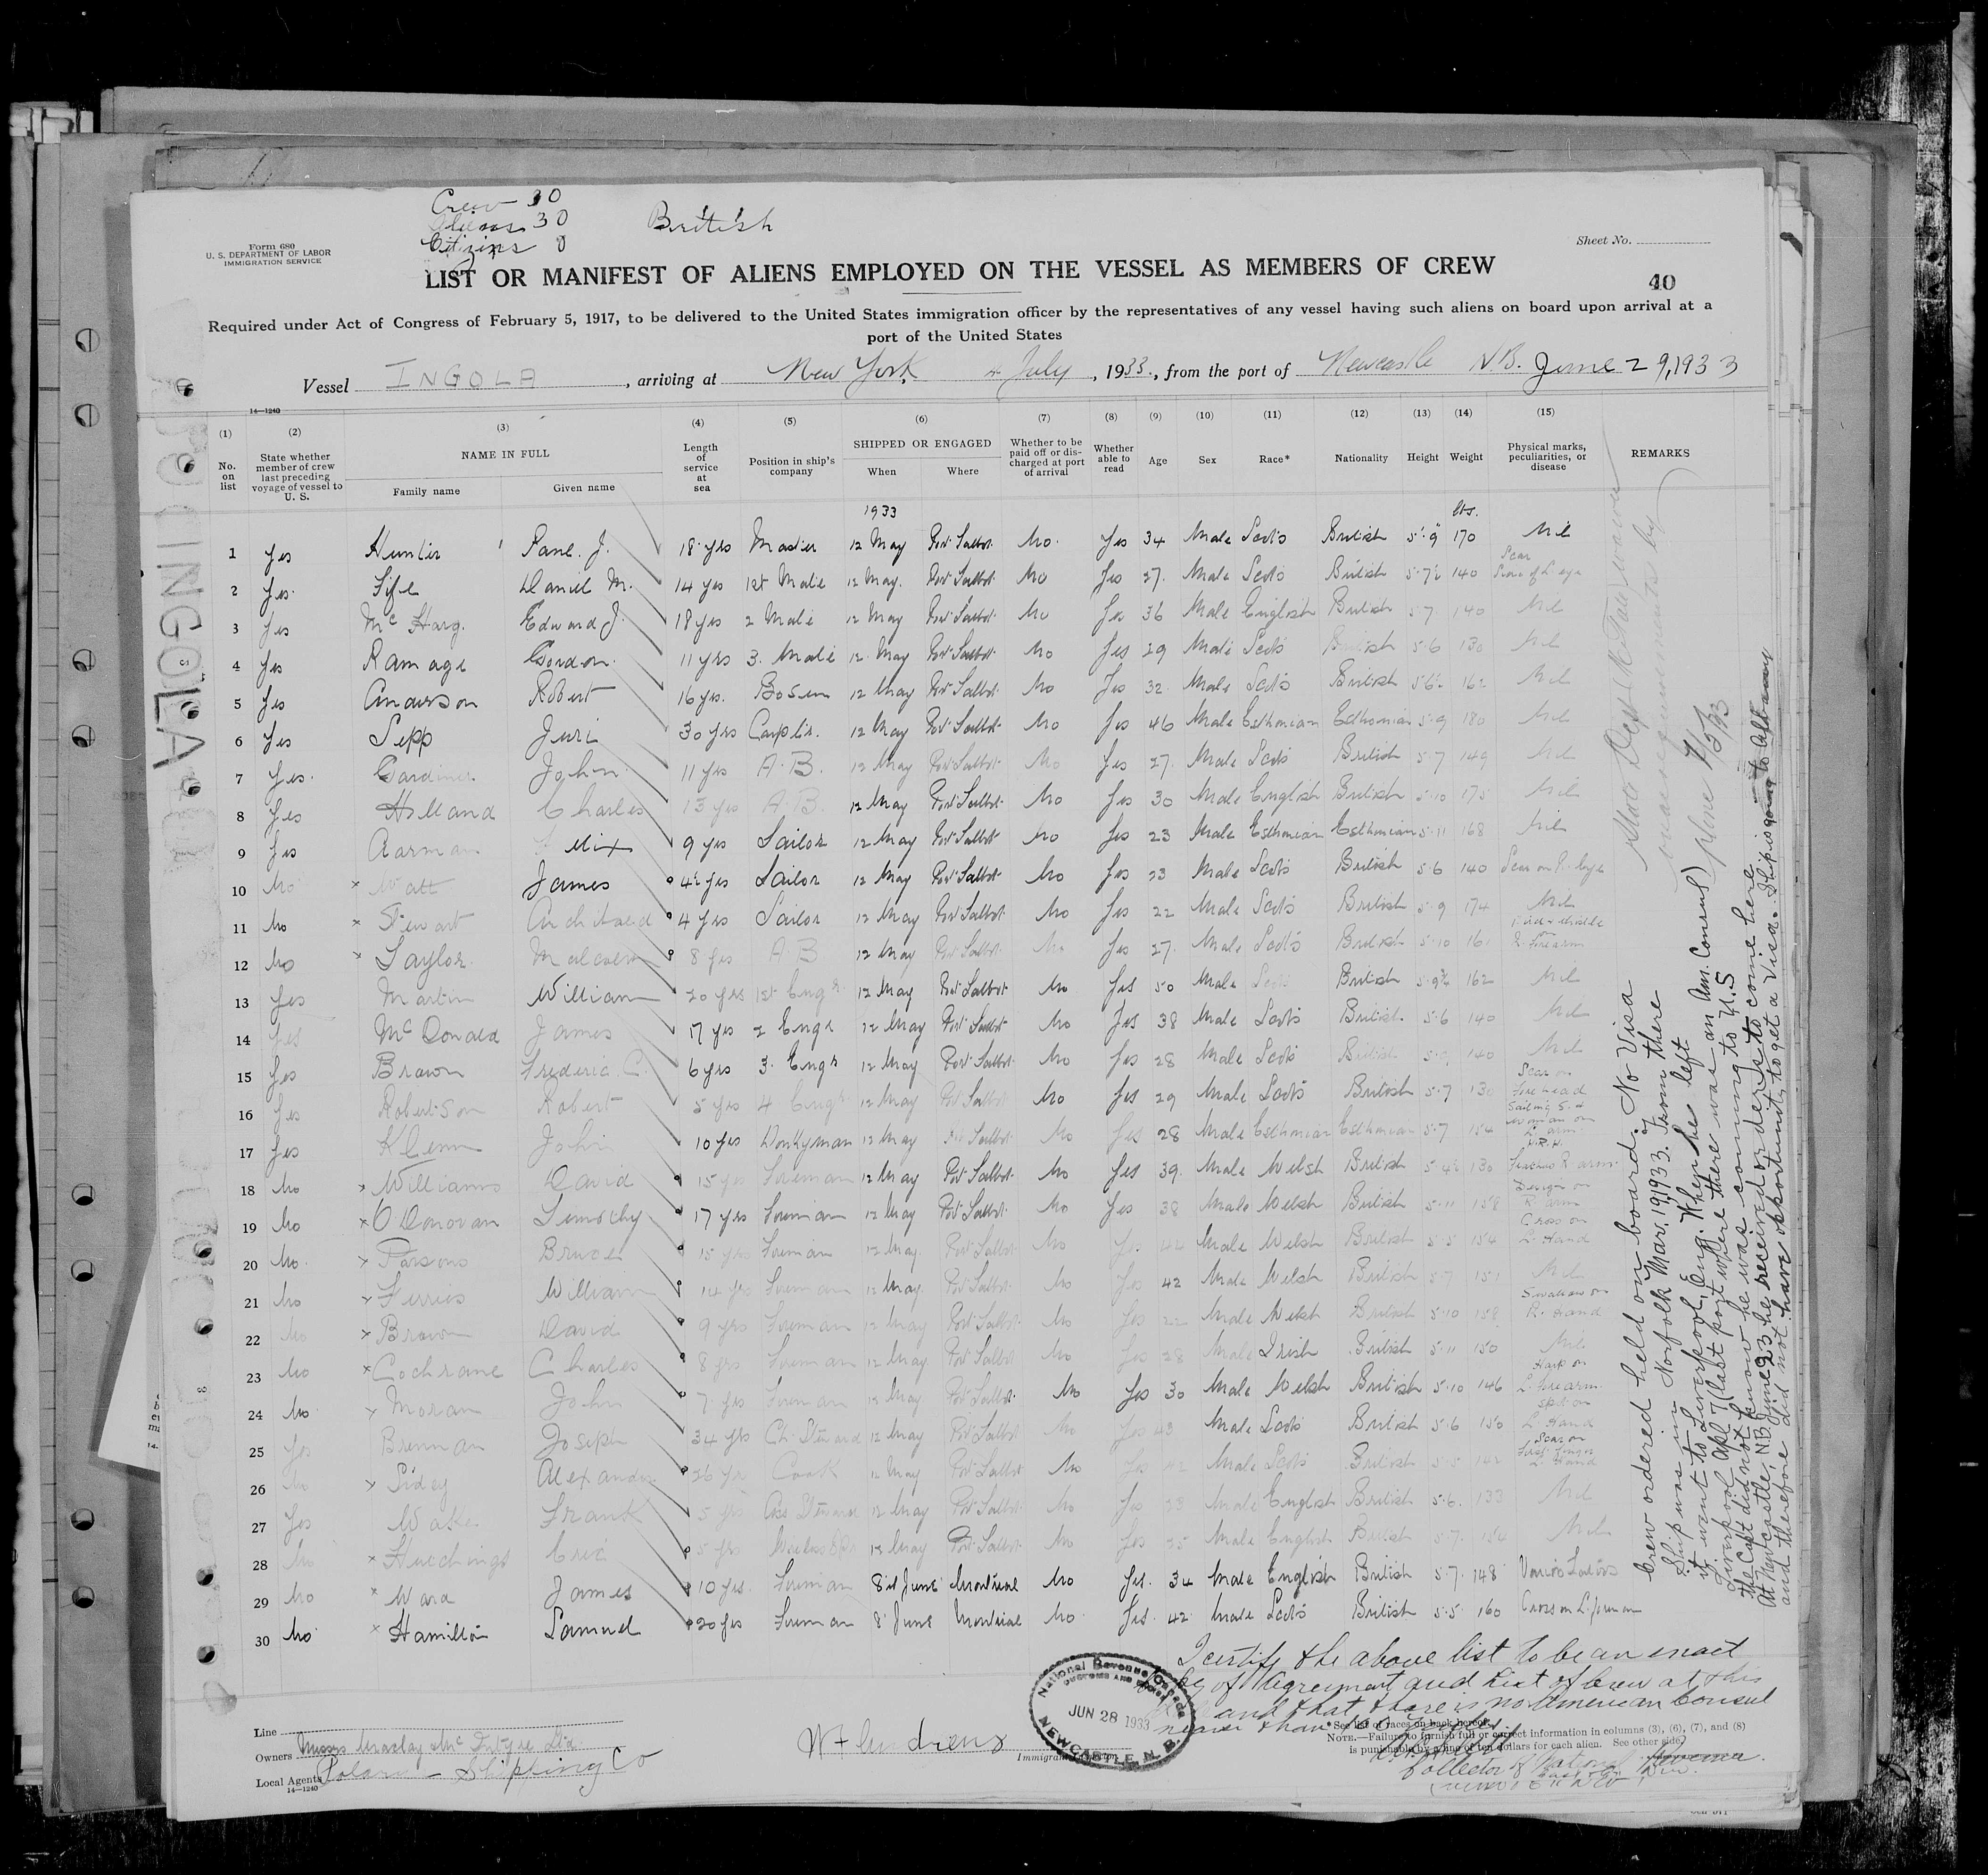 Crew 30
Aliens 30
Citizens 0
British
Form 680
U. S. DEPARTMENT OF LABOR
IMMIGRATION SERVICE
Sheet No.
LIST OR MANIFEST OF ALIENS EMPLOYED ON THE VESSEL AS MEMBERS OF CREW
40
Required under Act of Congress of February 5, 1917, to be delivered to the United States immigration officer by the representatives of any vessel having such aliens on board upon arrival at a
port of the United States
Vessel INGOLA, arriving at New York 4 July, 1933., from the port of Newcastle N.B. June 29, 1933
14—1240
(1) (2) (3) (4) (5) (6) (7) (8) (9) (10) (11) (12) (13) (14) (15)
No. on list State whether member of crew last preceding voyage of vessel to U. S. NAME IN FULL Family name Given name Length of service at sea Position in ship's company SHIPPED OR ENGAGED When Where Whether to be paid off or discharged at port of arrival Whether able to read Age Sex Race* Nationality Height Weight Physical marks, peculiarities, or disease REMARKS
1933 lbs.
1 Yes Hunter J. 18 yrs Master 12 May Port Talbot No. Yes 34 Male Scots British 5'9" 170 Nil
2 Yes. Fife Daniel M. 14 yrs 1st Mate 12 May. Port Talbot No Yes 27. Male Scots British 5.7½ 140 Scar L. eye
3 Yes McHarg. Edward J. 18 yrs 2 Mate 12 May Port Talbot No Yes 36 Male English British 5.7. 140 Nil
4 Yes Ramage Gordon. 11 yrs 3. Mate 12. May Port Talbot. No Yes 29 Male Scots British 5.6 130 Nil
5 Yes Anderson Robert 16 yrs. Bosun 12 May Port Talbot. No Yes 32. Male Scots British 5.6½ 162 Nil
6 Yes Sepp Juri 30 yrs Carptr. 12 May Port Talbot. No Yes 46 Male Esthonian Esthonian 5.9 180 Nil
7 Yes. Gardiner John 11 yrs A.B. 12 May Port Talbot No Yes 27. Male Scots British 5.7 149 Nil
8 Yes Holland Charles 13 yrs A.B. 12 May Port Talbot. No Yes 30 Male English British 5.10 175 Nil
9 Yes Aarman 9 yrs Sailor 12 May Port Talbot. No Yes 23 Male Esthonian Esthonian 5.11 168 Nil
10 No × Watt James 4½ yrs Sailor 12 May Port Talbot. No Yes 23 Male Scots British 5.6 140 Scar on
11 No × Stewart Archibald 4 yrs Sailor 12 May Port Talbot. No Yes 22 Male Scots British 5.9 174 Nil
12 No × Taylor. Malcolm 8 yrs A B 12 May Port Talbot No Yes 27. Male Scots British 5.10 161 R. forearm
13 Yes Martin William 20 yrs 1st Engr. 12 May Port Talbot No Yes 50 Male Scots British 5.9½ 162 Nil
14 Yes McDonald James 17 yrs 2 Engr 12 May Port Talbot. No Yes 38 Male Scots British. 5.6 140 Nil
15 Yes Brown Frederic C. 6 yrs 3. Engr 12 May Port Talbot. No Yes 28 Male Scots British 140 Nil
16 Yes Robertson Robert 5 yrs 4 Engr 12 May Port Talbot No Yes 29 Male Scots British 5.7 130 Scar on Forehead
17 Yes Klemm John 10 yrs Donkyman 12 May Port Talbot. No Yes 28 Male Esthonian Esthonian 5.7 154 Sailing woman on L. arm
18 No × Williams David 15 yrs Fireman 12 May Port Talbot. No Yes 39. Male Welsh British 5.4½ 130 R arm
19 No × O'Donovan Timothy 17 yrs Fireman 12 May Port Talbot. No Yes 38 Male Welsh British 5.11 158 Design on R. arm
20 No. × Parsons Bruce 15 yrs Fireman 12 May. Port Talbot. No Yes 44 Male Welsh British 5.5 154 Cross on L. Hand
21 No × Ferries William 14 yrs Fireman 12 May. Port Talbot. No Yes 42 Male Welsh British 5.7 151 Nil
22 No × Brown David 9 yrs Fireman 12 May Port Talbot. No Yes 22 Male Welsh British 5.10 158 Swallow on R. Hand
23 No × Cochrane Charles 8 yrs Fireman 12 May. Port Talbot. No Yes 28 Male Irish British 5.11 150 Nil
24 No. × Moran John 7 yrs Fireman 12 May Port Talbot. No Yes 30 Male Welsh British 5.10 146 Harp on L. forearm
25 Yes Brennan Joseph 34 yrs Ch. Steward 12 May Port Talbot No Yes 43 Male Scots British 5.6 150 Spot on L Hand
26 No × Sidey Alexander 26 yrs Cook 12 May Port Talbot. No Yes 42 Male Scots British 5.5 142 Scar on First finger L Hand
27 Yes Wake Frank 5 yrs Ass Steward 12 May Port Talbot No Yes 23 Male English British 5.6. 133 Nil
28 No × Hutchings Eric 5 yrs Wireless Opr 12 May Port Talbot. No Yes 25 Male English British 5.7. 154 Nil
29 No × Ward James 10 yrs. Fireman 8th June Montreal No Yes. 34 Male English British 5.7. 148 Various Tattoos
30 No. × Hamilton Samuel 20 yrs Fireman 8 June Montreal No. Yes. 42 Male Scots British 5.5. 160 Cross on L. forearm
State Dept waiver
visa requirements by
phone 7/5/33
Crew ordered held on board. No Visa
Ship was in Norfolk Mar. 19, 1933. From there
it went to Liverpool, Eng. When he left
Liverpool Apl 7 (last port where there was an Am. Consul)
the Capt did not know he was coming to U.S
At Newcastle, NB June 23 he received orders to come here
and therefore did not have opportunity to get a Visa. Ship is going to Albany
INGOLA
I certify the above list to be an exact
copy of Agreement and List of Crew at this
and that there is no American Consul
nearer than
Collector of National Revenue.
National Revenue Canada
CUSTOMS AND EXCISE
JUN 28 1933
NEWCASTLE, N. B.
* See list of races on back hereof.
NOTE.—Failure to furnish full or correct information in columns (3), (6), (7), and (8)
is punishable by a fine of ten dollars for each alien. See other side.
Line
Owners Messrs
Local Agents Shipping Co
14—1240
Immigrant Inspector.